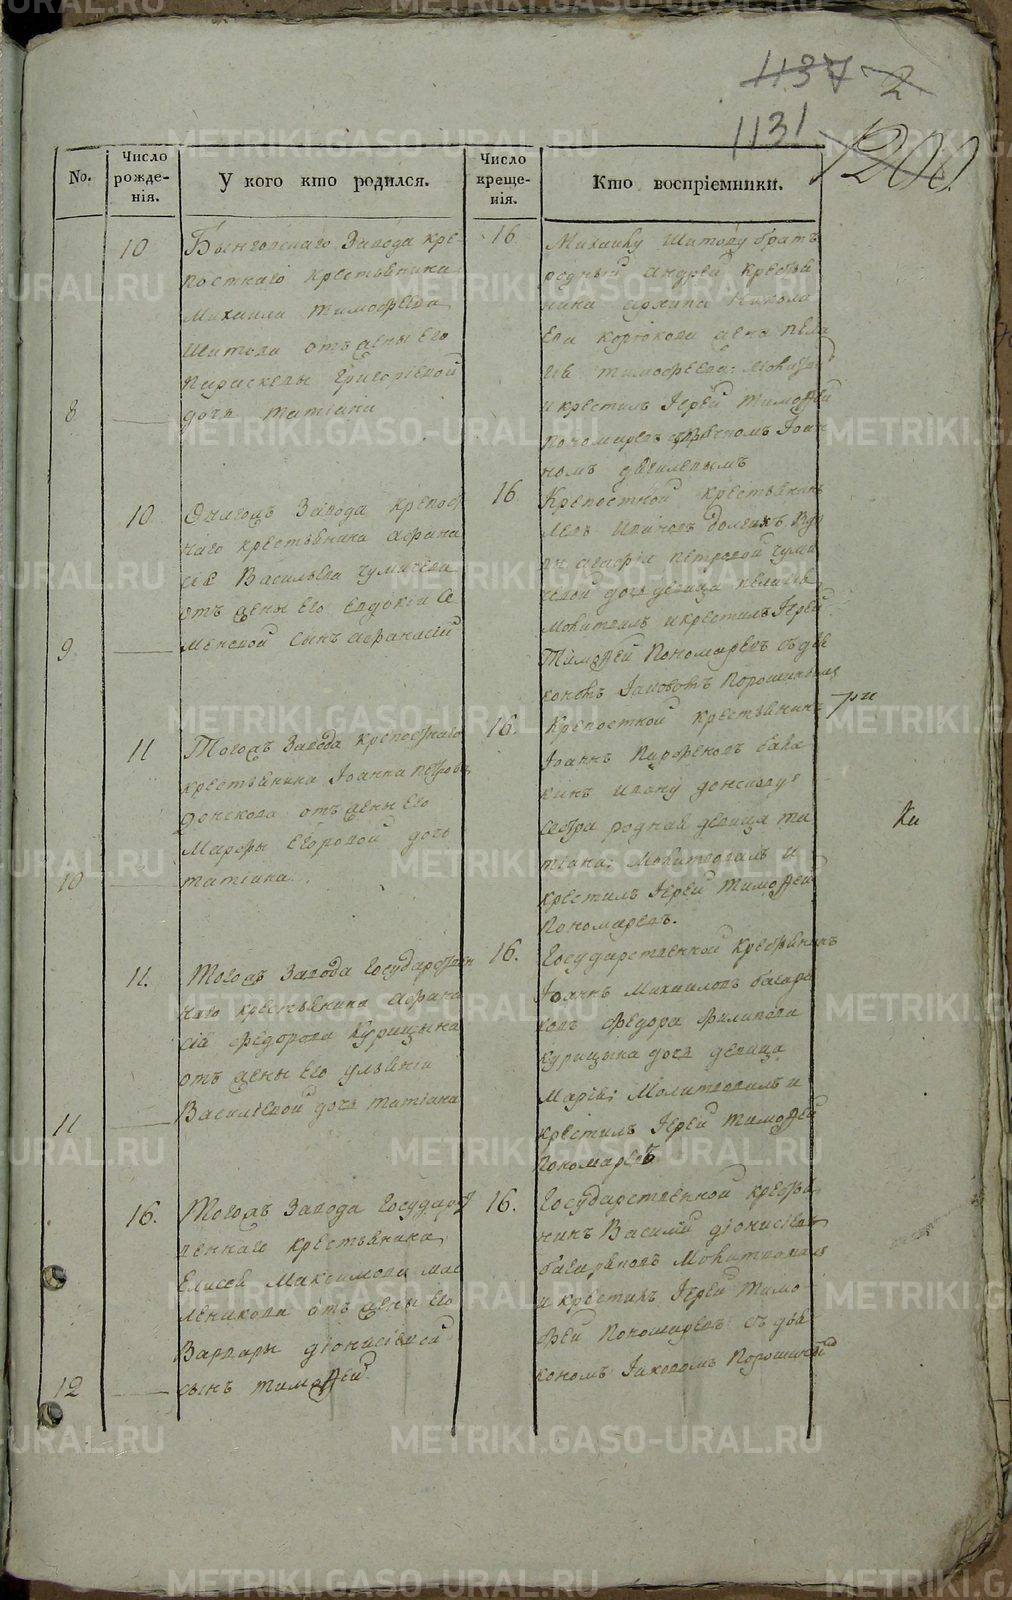 1137 2
1131
1200.
No.
Число
рожде-
нія.
У кого кто родился.
Число
креще-
нія.
Кто воспріемники.
8
10
Бынговскаго Завода кре
постнаго крестьянина
Михаила Тимофеева
Шитова отъ жены Его
Параскевы Григорьевой
дочь татіана
16
Михаилу Шитову братъ
родный Андрей крестья
нина архипа Никола
Ева дочь пела
гея тимофеева: Молитв
и крестилъ Іерей Тимоѳей
пономаревъ Іоан
номъ
9
10
Завода крепост
наго крестьянина Афана
сія Васильева Чумичева
отъ жены Его Евдокіи Се
меновой сынъ афанасій
16
Крепостной крестьянинъ
Левъ Ивановъ вдо
вы агафіи петровой чуми
чевой дочь девица пелагея
Молитвилъ и крестилъ Іерей
Тимоѳей Пономаревъ съ дья
кономъ Іаковомъ Порошинымъ
10
11
Тогожъ Завода крепостнаго
крестьянина Іоанна петрова
донскова отъ жены Его
Марфы Егоровой дочь
татіана
16.
Крепостной крестьянинъ
Іоаннъ Парфеновъ бала
кинъ ивану донскову
сестра родная девица та
тіана: Молитвовалъ и
крестилъ Іерей Тимоѳей
Пономаревъ.
При
Ки
11
11.
Тогожъ Завода Государствен
наго крестьянина Афана
сія Федорова Курицына
отъ жены Его ульяніи
Васильевой дочь татіана
16.
Государственной крестьянинъ
Іоаннъ Михаиловъ
Федора Филипова
Курицына дочь девица
Марія; Молитвовалъ и
крестилъ Іерей Тимоѳей
Пономаревъ
12
16.
Тогожъ Завода Государст
веннаго крестьянина
Елисея Максимова мас
леникова отъ жены Его
Варвары діонисіевой
сынъ тимоѳей
16.
Государственной крестья
нинъ Василій діонисіевъ
Молитвовалъ
и крестилъ Іерей Тимо
ѳей Пономаревъ съ дья
кономъ Іаковомъ Порошинымъ
METRIKI.GASO-URAL.RU